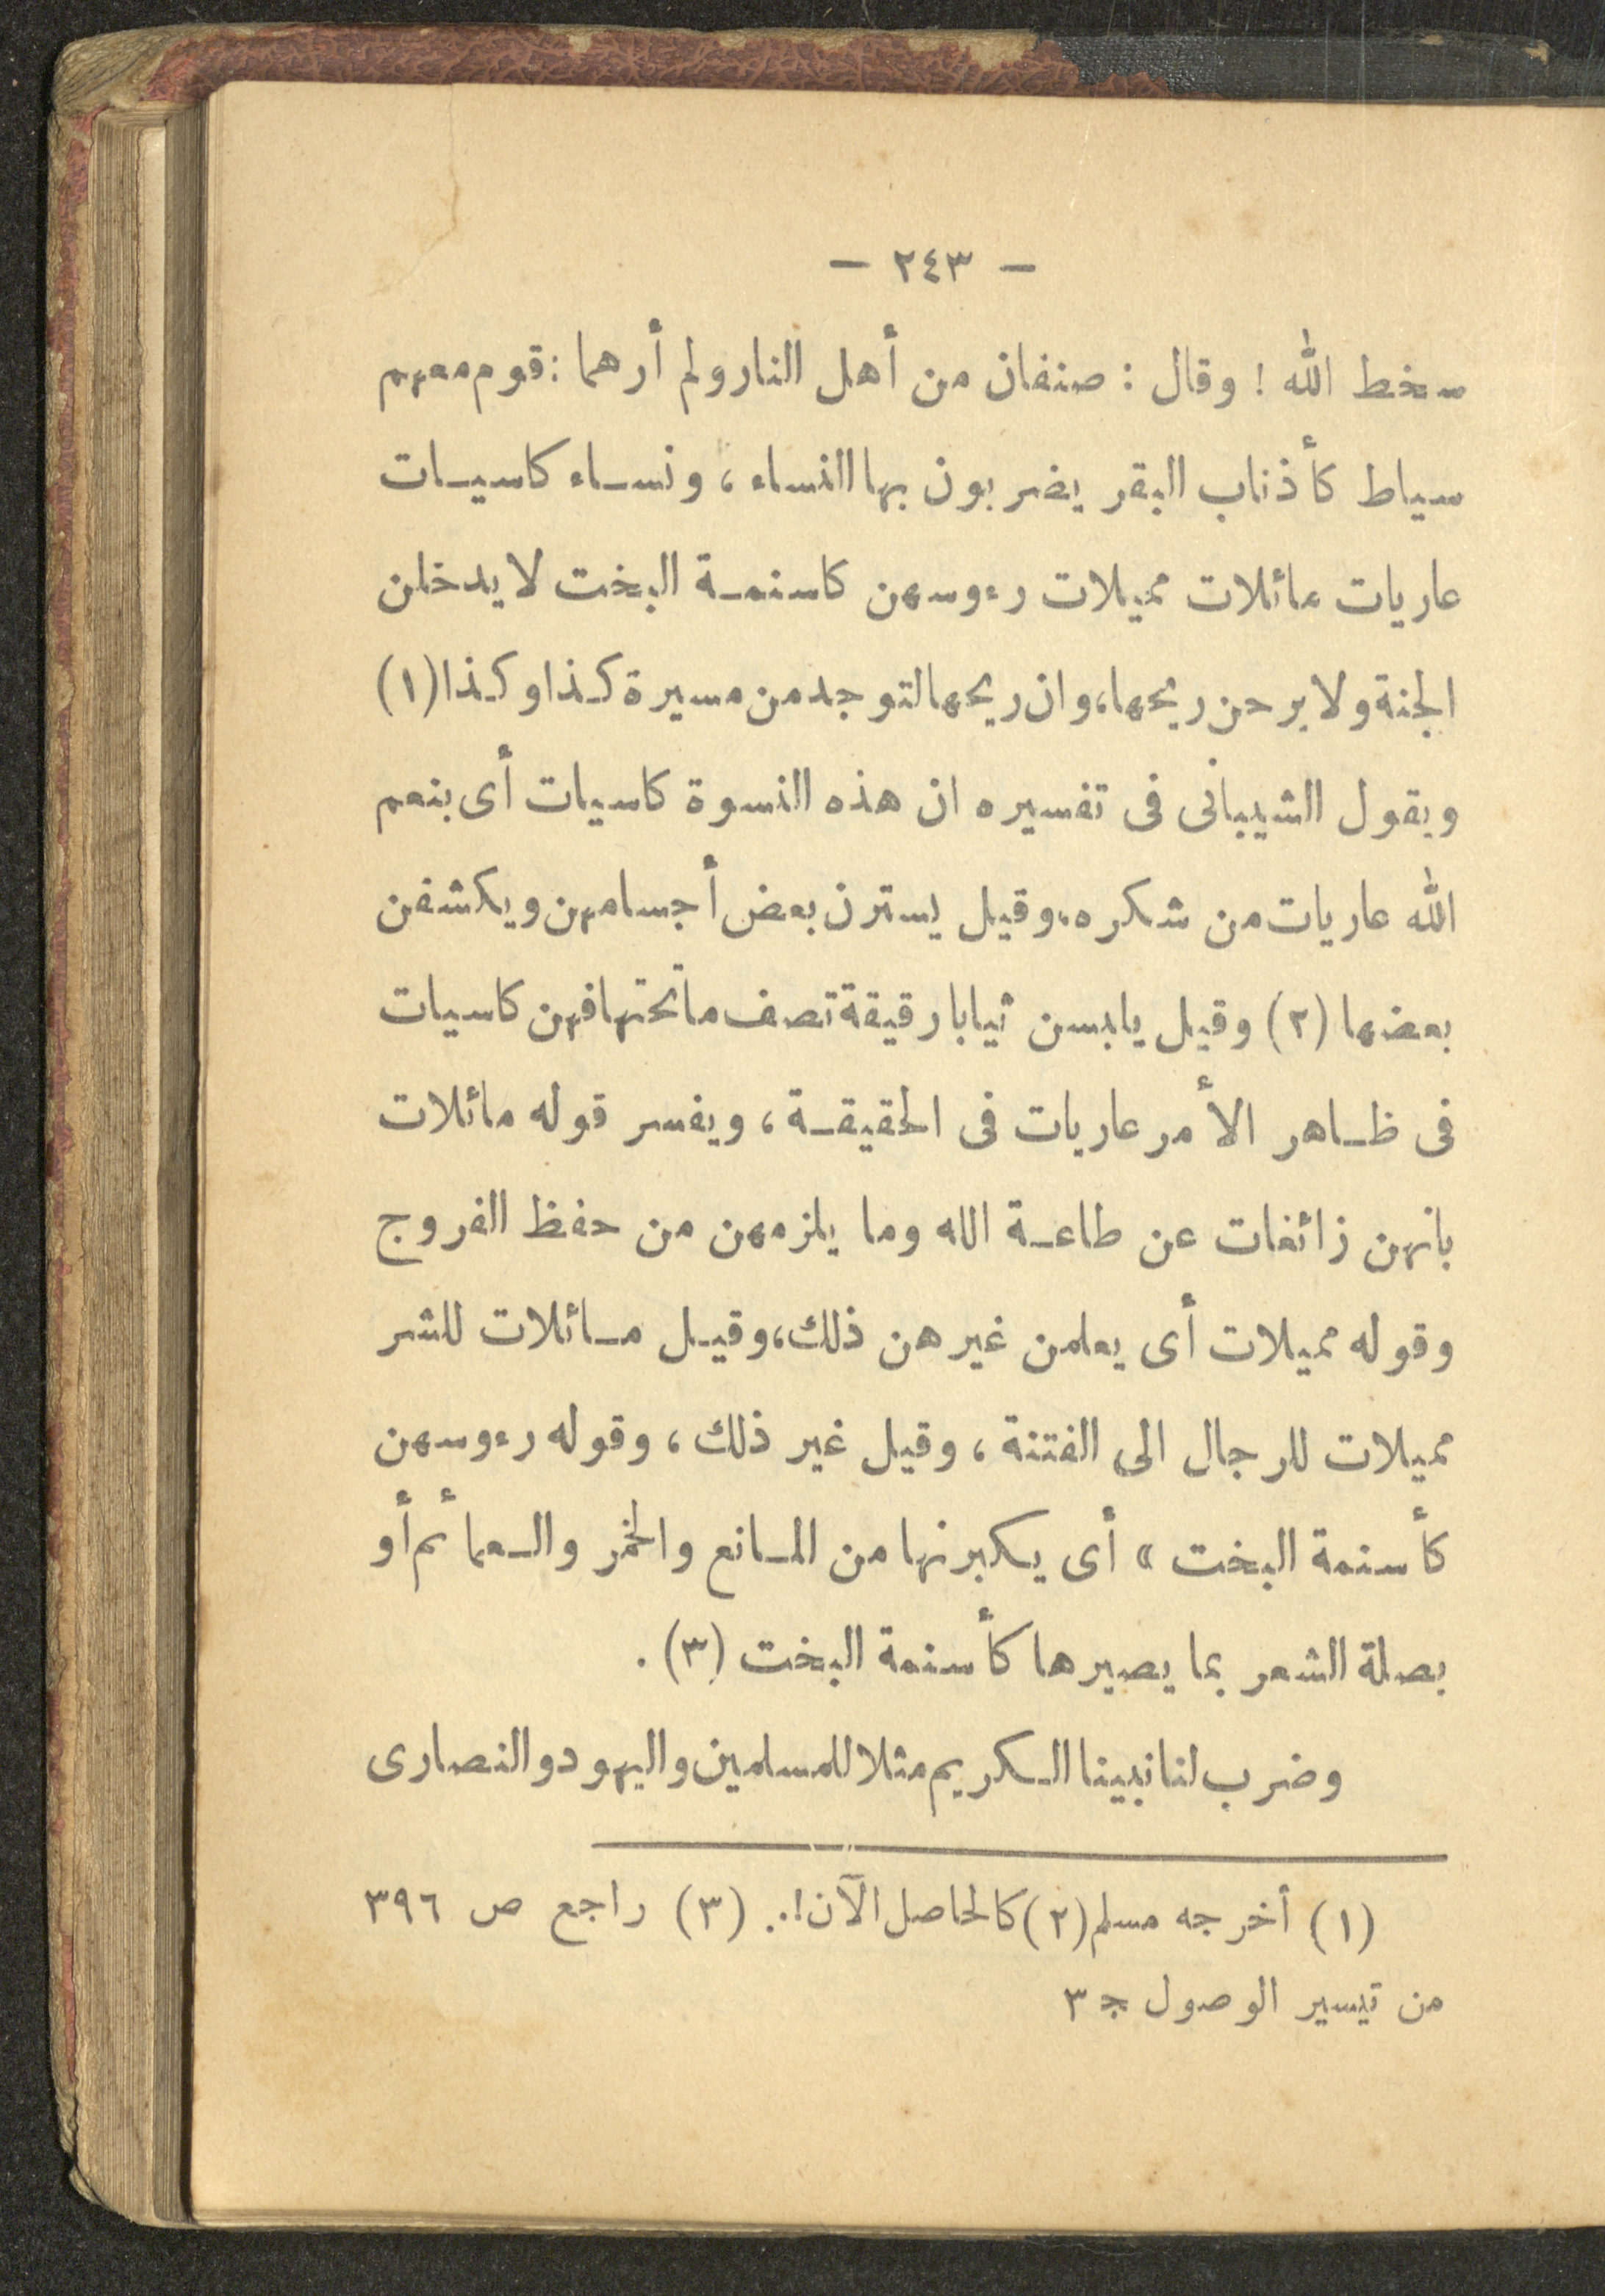 — ٢٤٣ —
سخط الله ! وقال : صنفان من أهل النار ولم أرهما : قوم معهم
سياط كأذناب البقر يضربون بها النساء ، ونساء كاسيات
عاريات مائلات مميلات رءوسهن كاسنمة البخت لا يدخلن
الجنة ولا يرحن ريحها، وان ريحها لتوجد من مسيرة كذا وكذا (١)
ويقول الشيبانى فى تفسيره ان هذه النسوة كاسيات أى بنعم
الله عاريات من شكره، وقيل يسترن بعض أجسامهن ويكشفن
بعضها (٢) وقيل يلبسن ثيابا رقيقة تصف ما تحتها فهن كاسيات
فى ظاهر الأمر عاريات فى الحقيقة ، ويفسر قوله مائلات
بانهن زائغات عن طاعة الله وما يلزمهن من حفظ الفروج
وقوله مميلات أى يعلمن غيرهن ذلك، وقيل مائلات للشر
مميلات للرجال الى الفتنة ، وقيل غير ذلك ، وقوله رءوسهن
كأسنمة البخت » أى يكبرنها من المانع والخمر والعمائم أو
بصلة الشعر بما يصيرها كأسنمة البخت (٣) .
وضرب لنا نبينا الكريم مثلا للمسلمين واليهود والنصارى
(١) أخرجه مسلم (٢) كالحاصل الآن!.. (٣) راجع ص ٣٩٦
من تيسير الوصول جـ ٣